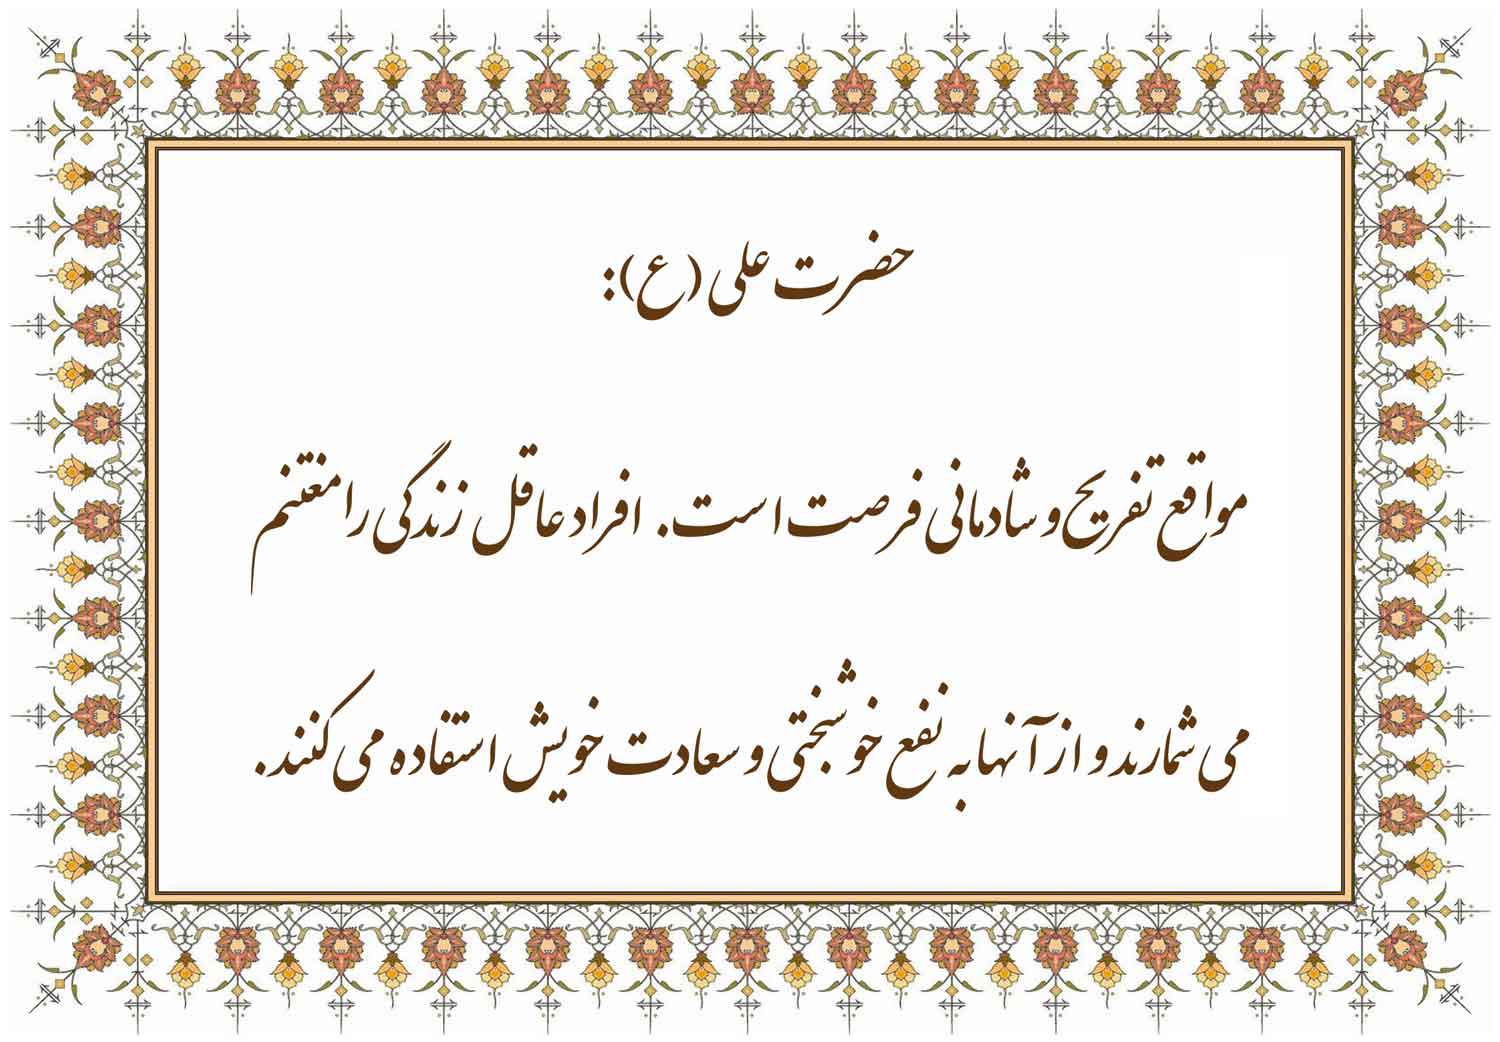 حضرت علی (ع):
مواقع تفریح و شادمانی فرصت است. افراد عاقل زندگی را مغتنم
می شمارند و از آنها به نفع خوشبختی و سعادت خویش استفاده می کنند.